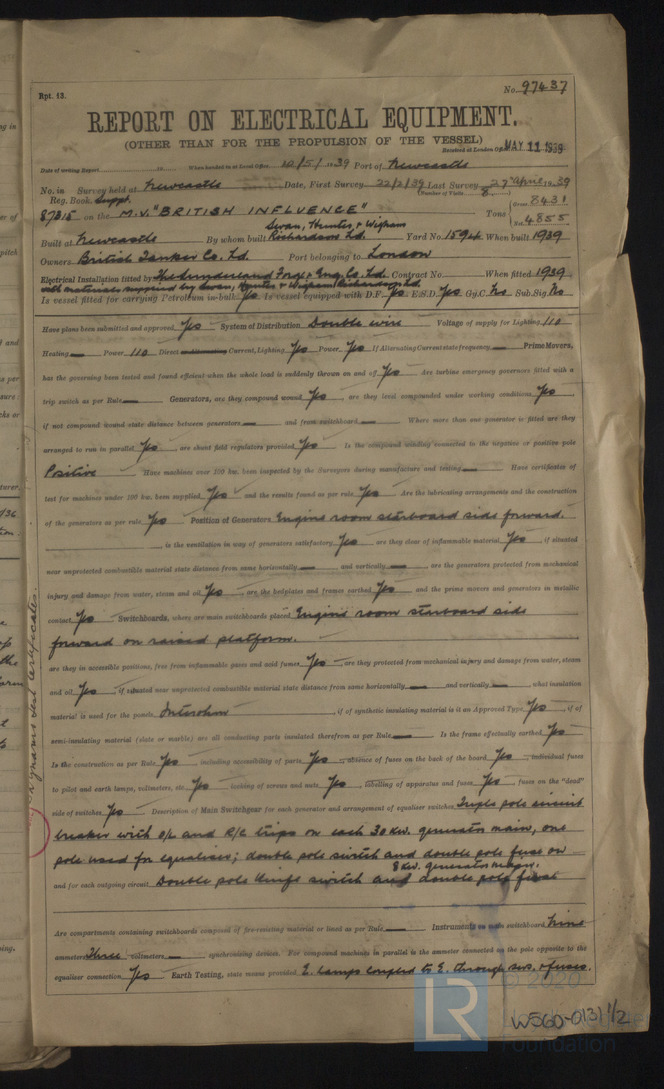 Rpt. 13.
No. 97437
REPORT ON ELECTRICAL EQUIPMENT.
(OTHER THAN FOR THE PROPULSION OF THE VESSEL)
Received at London Office MAY 11 1939
Date of writing Report When handed in at Local Office 10/5/1939 Port of Newcastle
No. in Survey held at Newcastle Date, First Survey 22/2/39 Last Survey 27th April 1939
Reg. Book. Suppt. (Number of Visits 8)
87315 on the M.V. "BRITISH INFLUENCE" Tons {Gross 8431 Net 4855
Built at Newcastle By whom built Swan, Hunter & Wigham Richardson Ld. Yard No. 1594 When built 1939
Owners British Tanker Co. Ld. Port belonging to London
Electrical Installation fitted by The Sunderland Forge & Eng. Co. Ld. Contract No. When fitted 1939
with materials supplied by Swan, Hunter & Wigham Richardson Ld
Is vessel fitted for carrying Petroleum in bulk Yes Is vessel equipped with D.F. Yes E.S.D. Yes Gy.C. No Sub.Sig. No
Have plans been submitted and approved Yes System of Distribution Double wire Voltage of supply for Lighting 110
Heating — Power 110 Direct or Alternating Current, Lighting Yes Power Yes If Alternating Current state frequency — Prime Movers,
has the governing been tested and found efficient when the whole load is suddenly thrown on and off Yes Are turbine emergency governors fitted with a
trip switch as per Rule — Generators, are they compound wound Yes, are they level compounded under working conditions Yes,
if not compound wound state distance between generators — and from switchboard — Where more than one generator is fitted are they
arranged to run in parallel Yes, are shunt field regulators provided Yes Is the compound winding connected to the negative or positive pole
Positive Have machines over 100 kw. been inspected by the Surveyors during manufacture and testing — Have certificates of
test for machines under 100 kw. been supplied Yes and the results found as per rule Yes Are the lubricating arrangements and the construction
of the generators as per rule Yes Position of Generators Engine room starboard side forward.
, is the ventilation in way of generators satisfactory Yes are they clear of inflammable material Yes, if situated
near unprotected combustible material state distance from same horizontally — and vertically —, are the generators protected from mechanical
injury and damage from water, steam and oil Yes, are the bedplates and frames earthed Yes and the prime movers and generators in metallic
contact Yes Switchboards, where are main switchboards placed Engine room starboard side
forward on raised platform.
are they in accessible positions, free from inflammable gases and acid fumes Yes, are they protected from mechanical injury and damage from water, steam
and oil Yes, if situated near unprotected combustible material state distance from same horizontally — and vertically —, what insulation
material is used for the panels, if of synthetic insulating material is it an Approved Type Yes, if of
semi-insulating material (slate or marble) are all conducting parts insulated therefrom as per Rule — Is the frame effectually earthed Yes
Is the construction as per Rule Yes, including accessibility of parts Yes, absence of fuses on the back of the board Yes, individual fuses
to pilot and earth lamps, voltmeters, etc. Yes locking of screws and nuts Yes, labelling of apparatus and fuses Yes, fuses on the "dead"
side of switches Yes Description of Main Switchgear for each generator and arrangement of equaliser switches Triple pole circuit
breaker with O/L and R/C trips on each 30 Kw. generator main, one
pole used for equaliser; double pole switch and double pole fuse on
8 Kw. generator main.
and for each outgoing circuit Double pole knife switch and double pole fuse
Are compartments containing switchboards composed of fire-resisting material or lined as per Rule — Instruments on main switchboard nine
ammeters three voltmeters — synchronising devices. For compound machines in parallel is the ammeter connected on the pole opposite to the
equaliser connection Yes Earth Testing, state means provided E. lamps coupled to E. through sws. & fuses.
LR © 2020
Foundation
W560-0131 1/2